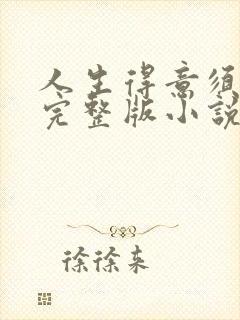 人生得意須
完整版小說
徐徐來